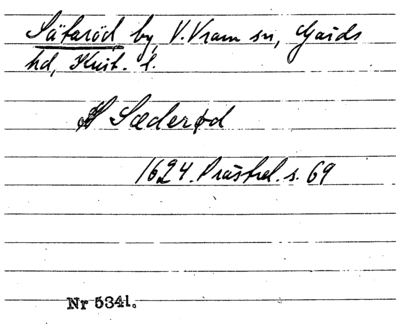 Sätaröd by, V. Vram sn, Gärds
hd, Krist. l.
Sæderød
1624. Prästrel. s. 69
Nr 5341.